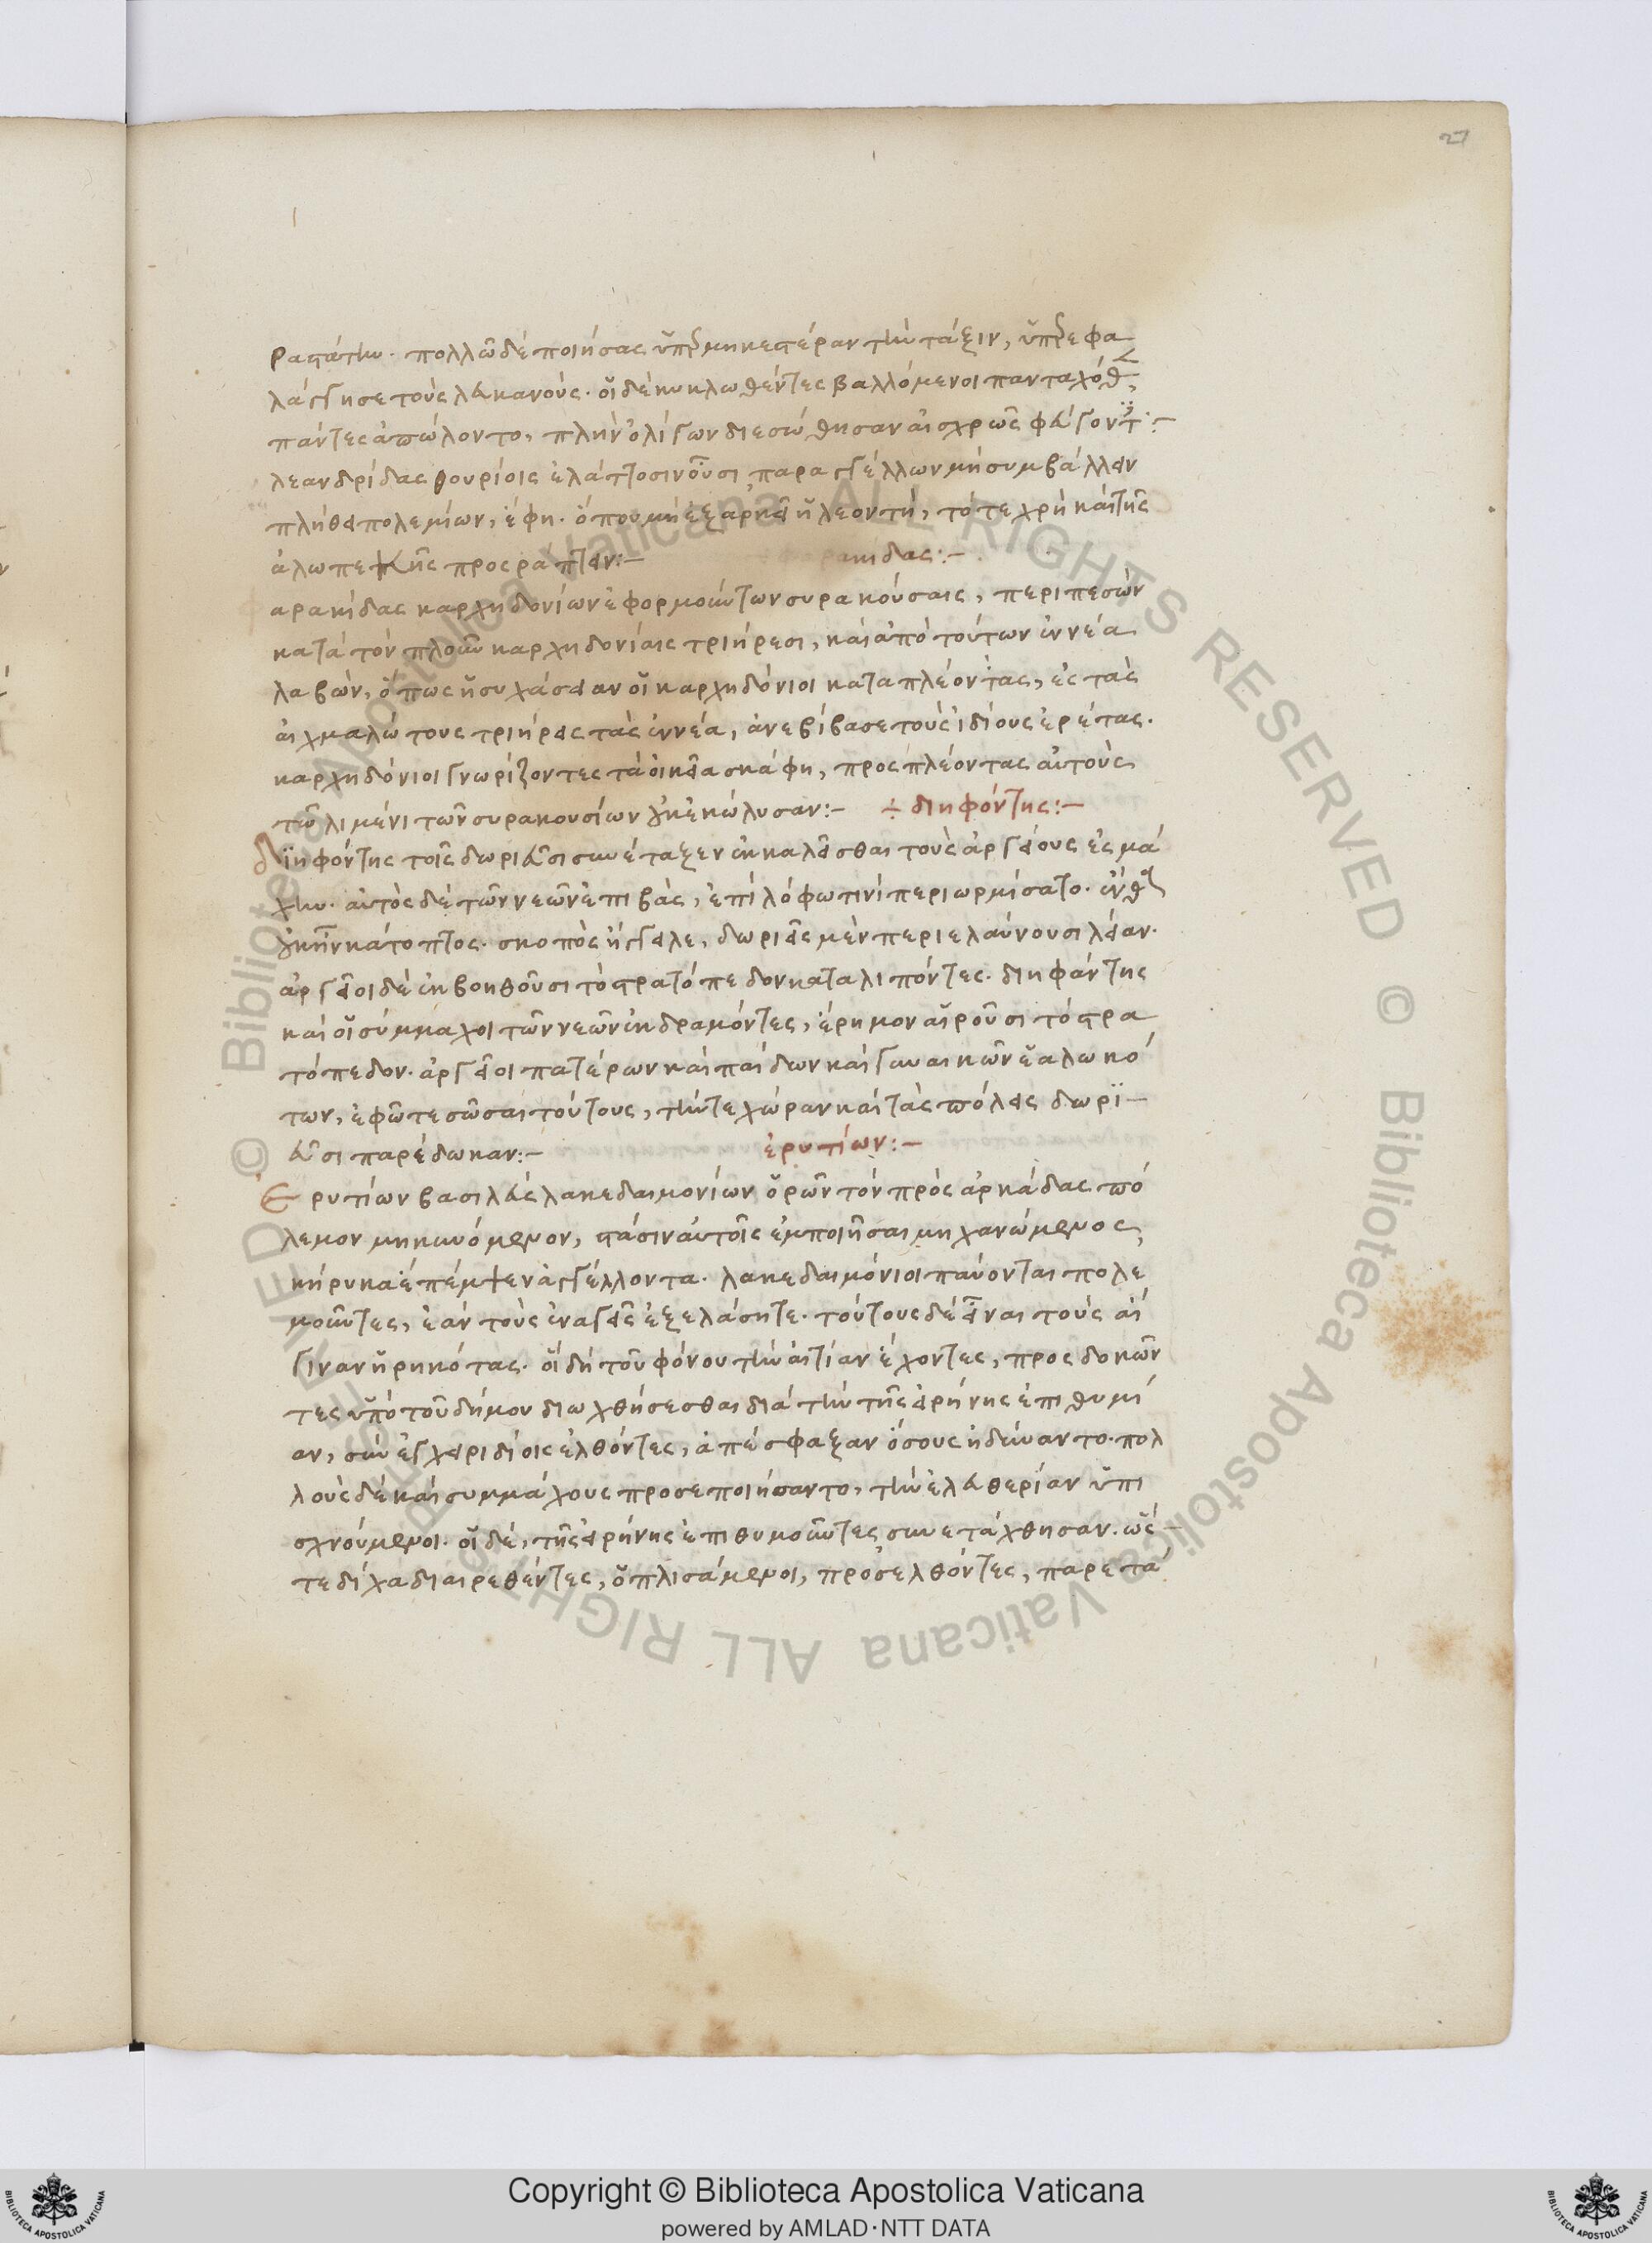 27
ραστάτην· πολλῶ δὲ ποιήσας ὑπερμηκεστέραν τὴν τάξιν, ὑπερεφα
λάγγησε τοὺς λευκανούς· οἱ δὲ κυκλωθέντες βαλλόμενοι πανταχόθεν,
πάντες ἀπώλοντο, πλὴν ὀλίγων διεσώθησαν αἰσχρῶς φευγοντ:-
λεανδρίδας θουρίοις ἐλάττοσιν οὖσι παραγγέλλων μὴ συμβάλλειν
πλήθει πολεμίων, ἔφη· ὅπου μὴ ἐξαρκεῖ ἡ λεοντῆ, τότε χρὴ καὶ τῆς
ἀλωπεκῆς προσράπτειν:- φαρακιδας:-
αρακίδας καρχηδονίων ἐφορμούντων συρακούσαις, περιπεσὼν
κατὰ τὸν πλοῦν καρχηδονίαις τριήρεσι, καὶ ἀπὸ τούτων ἐννέα
λαβών, ὅπως ἡσυχάσειαν οἱ καρχηδόνιοι καταπλέοντας, ἐς τὰς
αἰχμαλώτους τριήρεις τὰς ἐννέα, ἀνεβίβασε τοὺς ἰδίους ἐρέτας.
καρχηδόνιοι γνωρίζοντες τὰ οἰκεῖα σκάφη, προσπλέοντας αὐτοὺς
τῶ λιμένι τῶν συρακουσίων οὐκ ἐκώλυσαν:- ÷ διηφόντης:-
Διηφόντης τοῖς δωριεῦσι συνέταξεν ἐκκαλεῖσθαι τοὺς ἀργείους ἐς μά
χην· αὐτὸς δὲ τῶν νεῶν ἐπιβὰς, ἐπὶ λόφω τινὶ περιωρμίσατο· ἔνθα
οὐκ ἦν κάτοπτος· σκοπὸς ἤγγειλε, δωριεῖς μὲν περιελαύνουσι λείαν·
ἀργεῖοι δὲ ἐκβοηθοῦσι τὸ στρατόπεδον καταλιπόντες· διηφάντης
καὶ οἱ σύμμαχοι τῶν νεῶν ἐκδραμόντες, ἔρημον αἱροῦσι τὸ στρα
τόπεδον· ἀργεῖοι πατέρων καὶ παίδων καὶ γυναικῶν ἑαλωκό
των, ἐφῶτε σῶσαι τούτους, τήντε χώραν καὶ τὰς πόλεις δωρϊ-
εῦσι παρέδωκαν:- ἐρυτίων:-
Ερυτίων βασιλεὺς λακεδαιμονίων ὁρῶν τὸν πρὸς ἀρκάδας πό
λεμον μηκυνόμενον, στάσιν αὐτοῖς ἐμποιῆσαι μηχανώμενος,
κήρυκα ἔπεμψεν ἀγγέλλοντα· λακεδαιμόνιοι παύονται πολε
μοῦντες, ἐὰν τοὺς ἐναγεῖς ἐξελάσητε· τούτους δὲ εἶναι τοὺς αἰ
γιναν ἡρηκότας· οἱ δὴ τοῦ φόνου τὴν αἰτίαν ἔχοντες, προσδοκῶν
τες ὑπὸ τοῦ δήμου διωχθήσεσθαι διὰ τὴν τῆς εἰρήνης ἐπιθυμί
αν, σὺν ἐγχειριδίοις ἐλθόντες, ἀπέσφαξαν ὅσους ἠδύναντο· πολ
λοὺς δὲ καὶ συμμάχους προσεποιήσαντο, τὴν ἐλευθερίαν ὑπι
σχνούμενοι· οἱ δὲ, τῆς εἰρήνης ἐπιθυμοῦντες συνετάχθησαν. ὥσ-
τε δίχα διαιρεθέντες, ὁπλισάμενοι, προσελθόντες, παρετά
© Biblioteca Apostolica Vaticana ALL RIGHTS RESERVED © Biblioteca Apostolica Vaticana ALL RIGHTS RESERVED
Copyright © Biblioteca Apostolica Vaticana
powered by AMLAD·NTT DATA
BIBLIOTECA APOSTOLICA VATICANA
BIBLIOTECA APOSTOLICA VATICANA